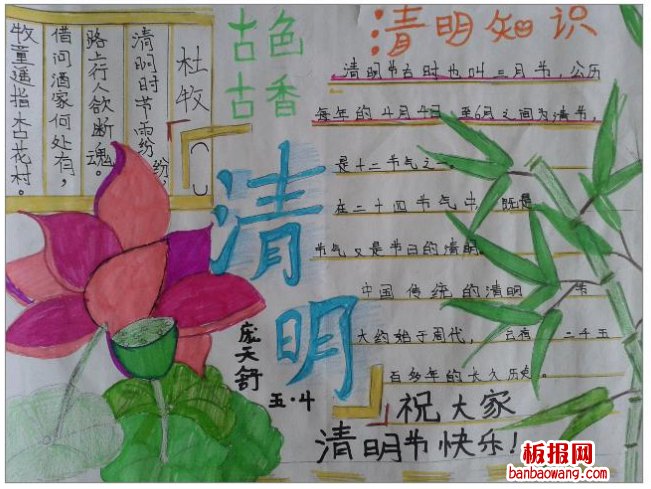 杜牧
清明时节雨纷纷,
路上行人欲断魂。
借问酒家何处有,
牧童遥指杏花村。
古色
古香
清明
庞天舒
五·4
清明知识
清明节古时也叫三月节,公历
每年的4月4日至6日之间为清节,
是十二节气之一。
在二十四节气中,既是
节气又是节日的清明。
中国传统的清明 节
大约始于周代, 二千五
百多年的长久历史。
祝大家
清明节快乐!
板报网
banbaowang.com